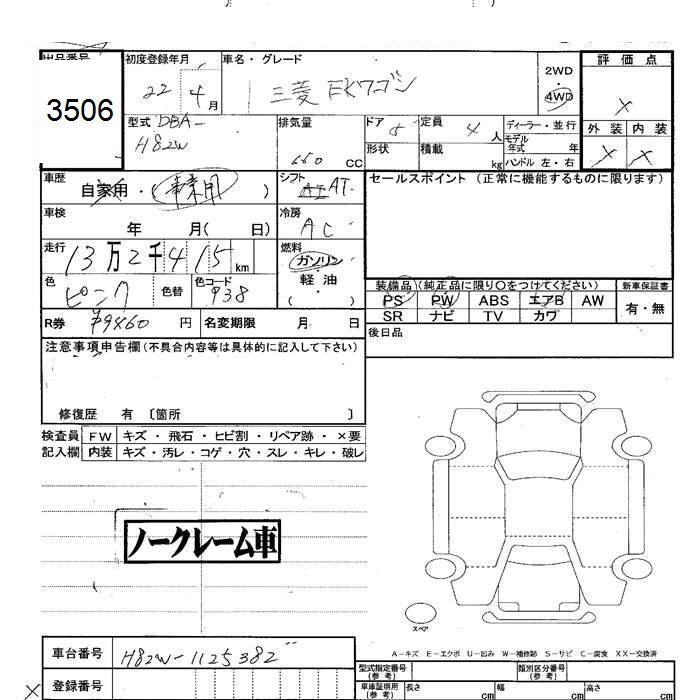 出品番号 初度登録年月 車名・グレード 2WD 評価点
3506 22 4月 三菱 EKワゴン 4WD ×
型式 DBA- H82W 排気量 660 CC ドア 5 定員 4 人 ディーラー・並行 外装 内装
形状 積載 kg モデル年式 年 ハンドル 左・右 × ×
車歴 自家用・(事業用) シフト AT セールスポイント (正常に機能するものに限ります)
車検 年 月( 日) 冷房 AC
走行 13万2千415km 燃料 ガソリン
色 ピンク 色替 色コード 938 軽油 ( ) 装備品(純正品に限り○をつけてください) 新車保証書
PS PW ABS エアB AW 有・無
R券 ¥9460 円 名変期限 月 日 SR ナビ TV カワ
注意事項申告欄(不具合内容等は具体的に記入して下さい) 後日品
修復歴 有 〔箇所 〕
検査員 FW キズ・飛石・ヒビ割・リペア跡・×要
記入欄 内装 キズ・汚レ・コゲ・穴・スレ・キレ・破レ
ノークレーム車
スペア
A-キズ E-エクボ U-凹み W-補修跡 S-サビ C-腐食 XX-交換済
車台番号 H82W-1125382
型式指定番号(参考) 類別区分番号(参考)
登録番号 車庫証明用(参考) 長さ cm 幅 cm 高さ cm